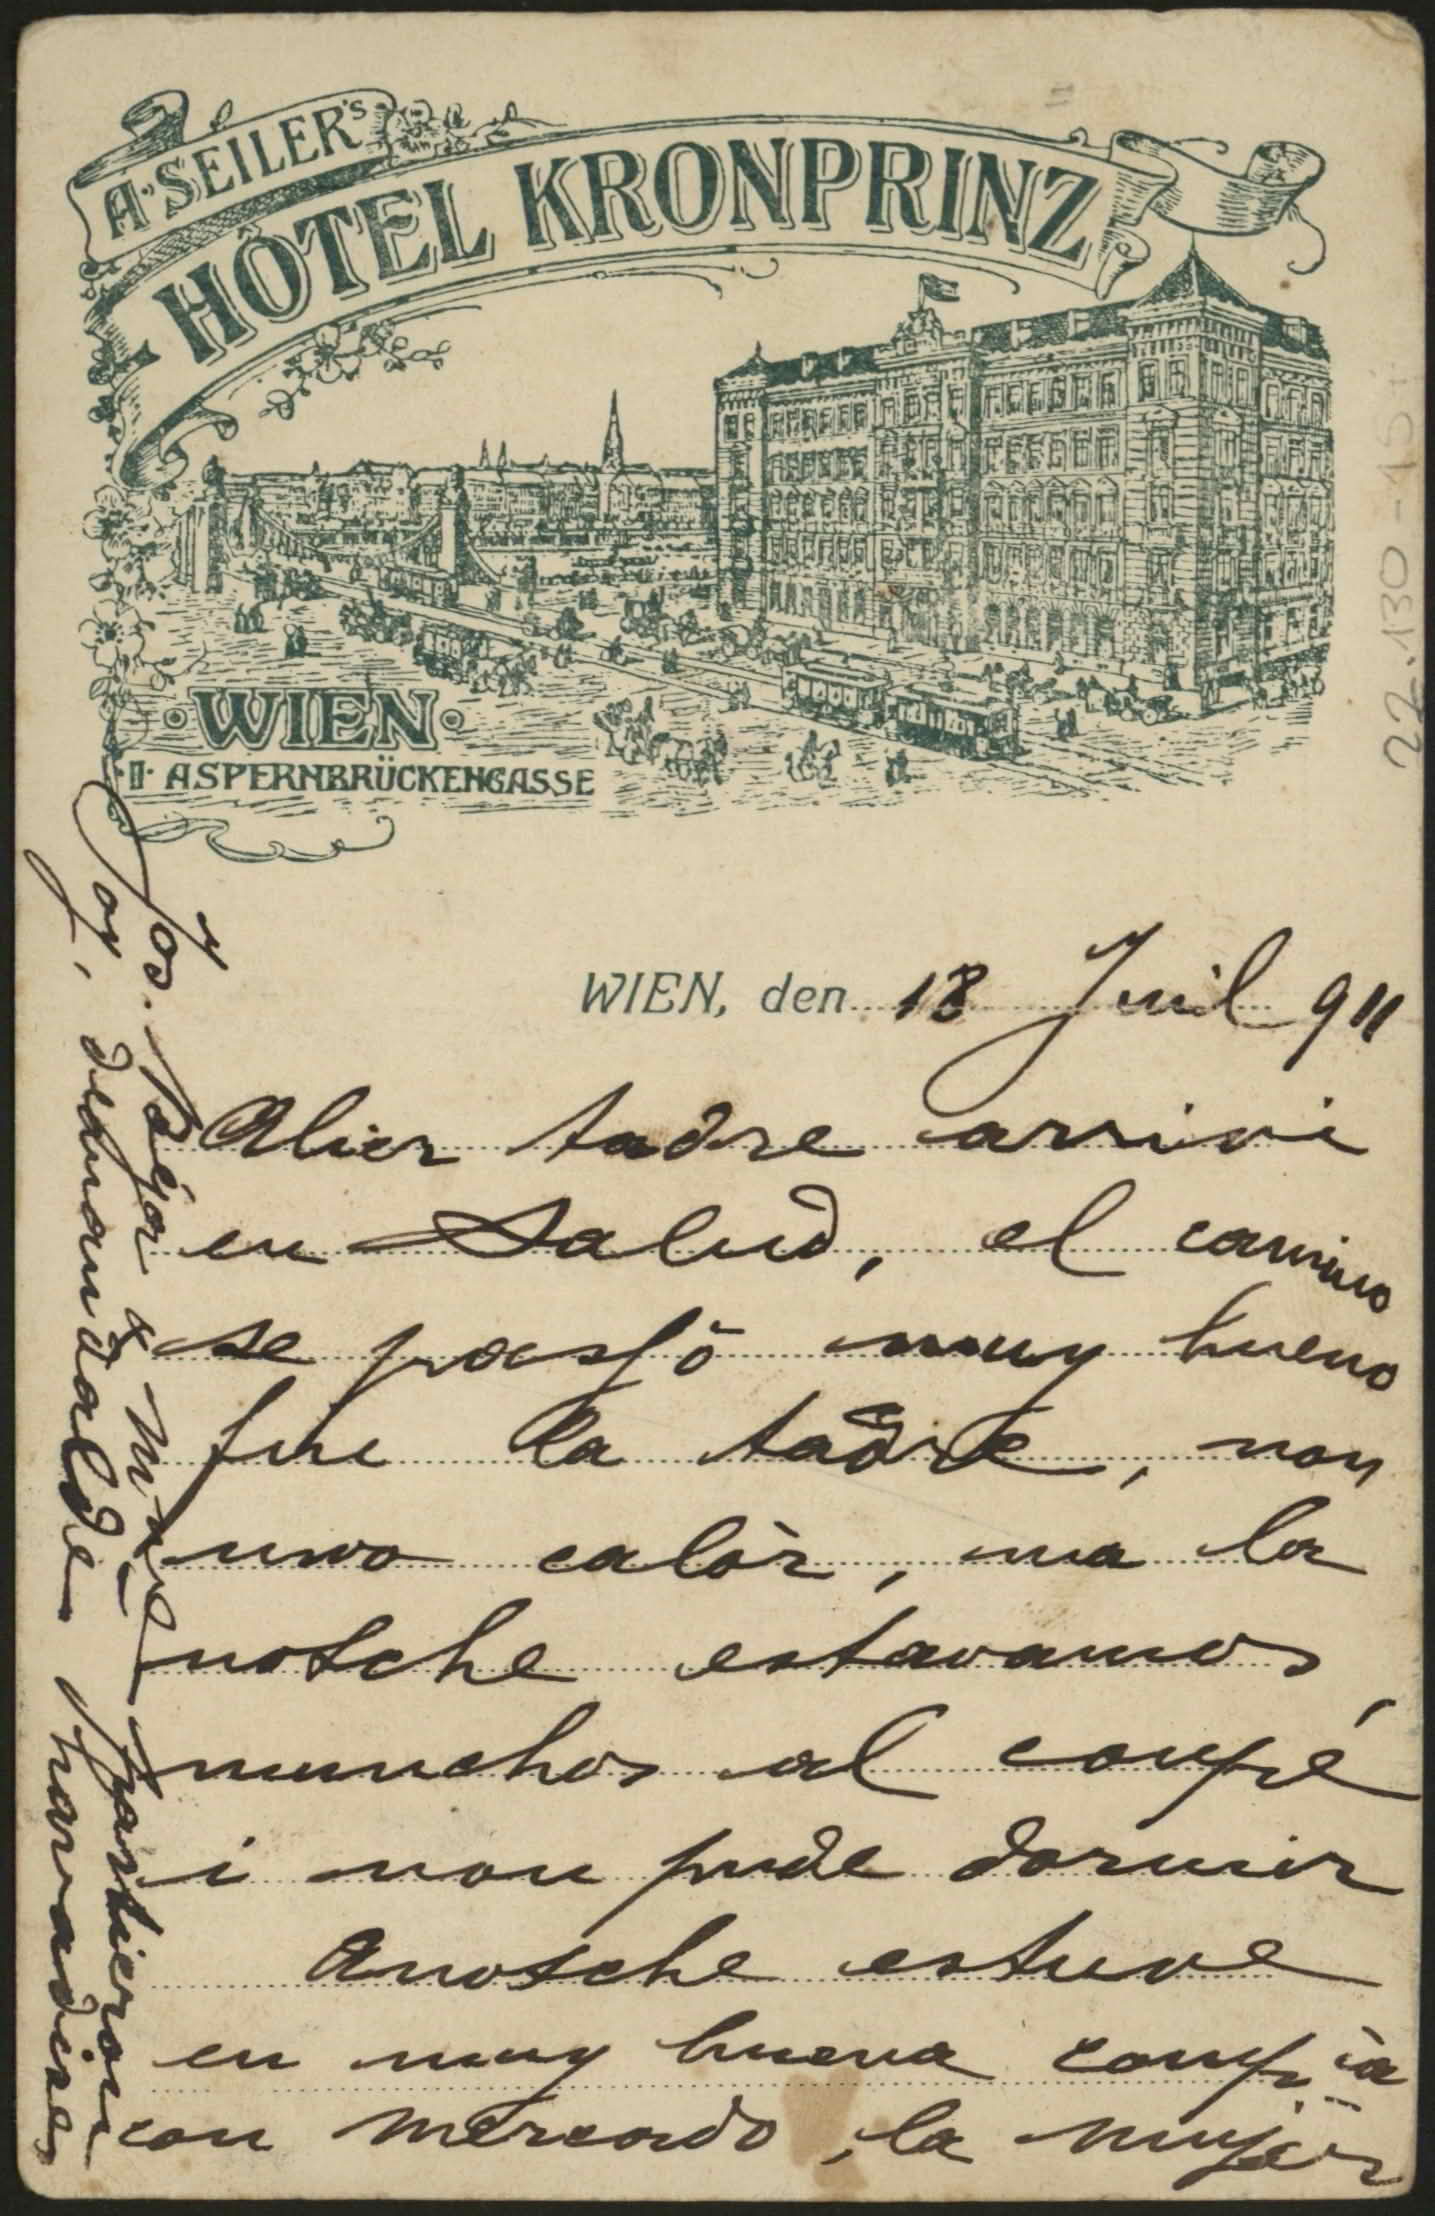 A. SEILER'S
HÔTEL KRONPRINZ
WIEN
II. ASPERNBRÜCKENGASSE
22.130-15
WIEN, den 18 Juil 911
Alier tadre arrivi
en Salud, el camino
se passó muy bueno
fin la tadre, non
uvo calòr, ma la
notche estavamos
munchos al coupé
i non pude dormir
Anotche estuve
en muy buena comp ia
con Mercado, la mujèr
y
Jos. Bejar & partieron
oy, demandalde haravdines